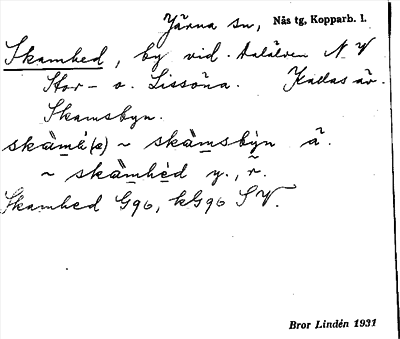 Järna sn, Nås tg, Kopparb. l.
Skamhed, by vid Dalälven N V
Stor- o. Lissöna. Kallas äv.
Skamsbyn.
skàmé(ə) ~ skàmsbỳn ä.
~ skàmhèd y., r̃.
Skamhed G96, kG96 SV.
Bror Lindén 1931